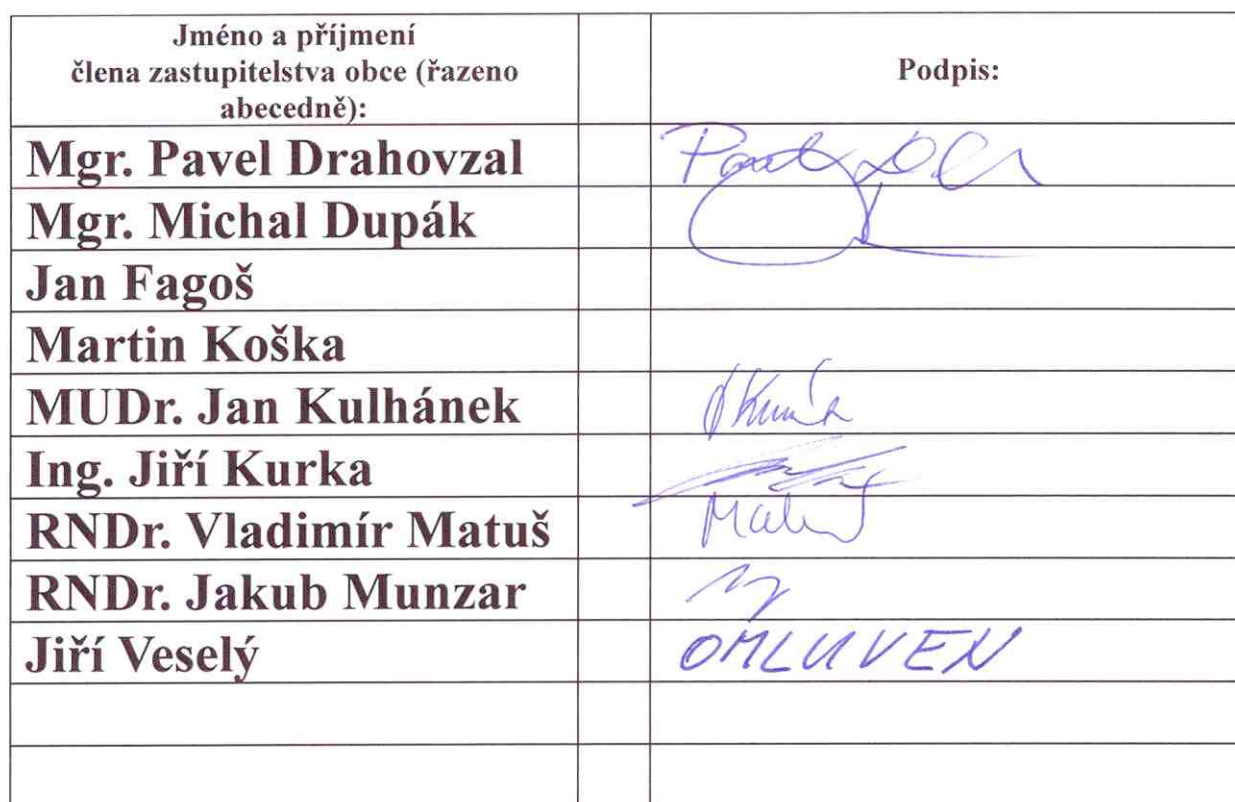 Jméno a příjmení
člena zastupitelstva obce (řazeno
abecedně):
Podpis:
Mgr. Pavel Drahovzal
Mgr. Michal Dupák
Jan Fagoš
Martin Koška
MUDr. Jan Kulhánek
Ing. Jiří Kurka
RNDr. Vladimír Matuš
RNDr. Jakub Munzar
Jiří Veselý OMLUVEN